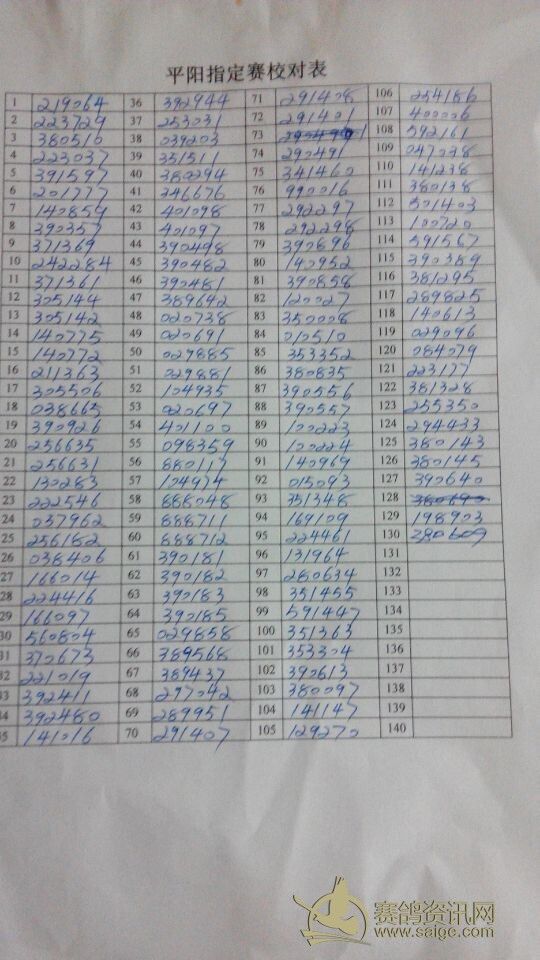 平阳指定赛校对表
1 219064 36 392944 71 291408 106 254186
2 223729 37 253031 72 291401 107 400006
3 380510 38 039203 73 108 592161
4 223037 39 351511 74 290491 109 047038
5 391597 40 380294 75 341460 110 141238
6 201777 41 346676 76 990016 111 380138
7 140859 42 401098 77 292297 112 501403
8 390357 43 401097 78 292298 113 100720
9 371369 44 390498 79 390696 114 591567
10 242284 45 390482 80 140952 115 390389
11 371361 46 390481 81 390858 116 381295
12 305144 47 389642 82 120027 117 289825
13 305142 48 020738 83 350008 118 140613
14 140775 49 020691 84 010510 119 029096
15 140772 50 029885 85 353352 120 084079
16 211363 51 029881 86 380835 121 223177
17 305506 52 104935 87 390556 122 381328
18 038665 53 020697 88 390557 123 255350
19 390926 54 401100 89 100223 124 294433
20 256635 55 098359 90 100224 125 380143
21 256631 56 880117 91 140969 126 380145
22 130283 57 104974 92 015093 127 390640
23 222546 58 888048 93 351348 128
24 037962 59 888711 94 169109 129 198903
25 256182 60 888712 95 224461 130 380609
26 038406 61 390181 96 131964 131
27 166014 62 390182 97 280634 132
28 224416 63 390183 98 351455 133
29 166097 64 390185 99 591447 134
30 560804 65 029858 100 351363 135
31 370673 66 389568 101 353304 136
32 221019 67 389437 102 390613 137
33 392411 68 297042 103 380097 138
34 392480 69 289951 104 141147 139
35 141016 70 291407 105 129270 140
赛鸽资讯网
www.saige.com